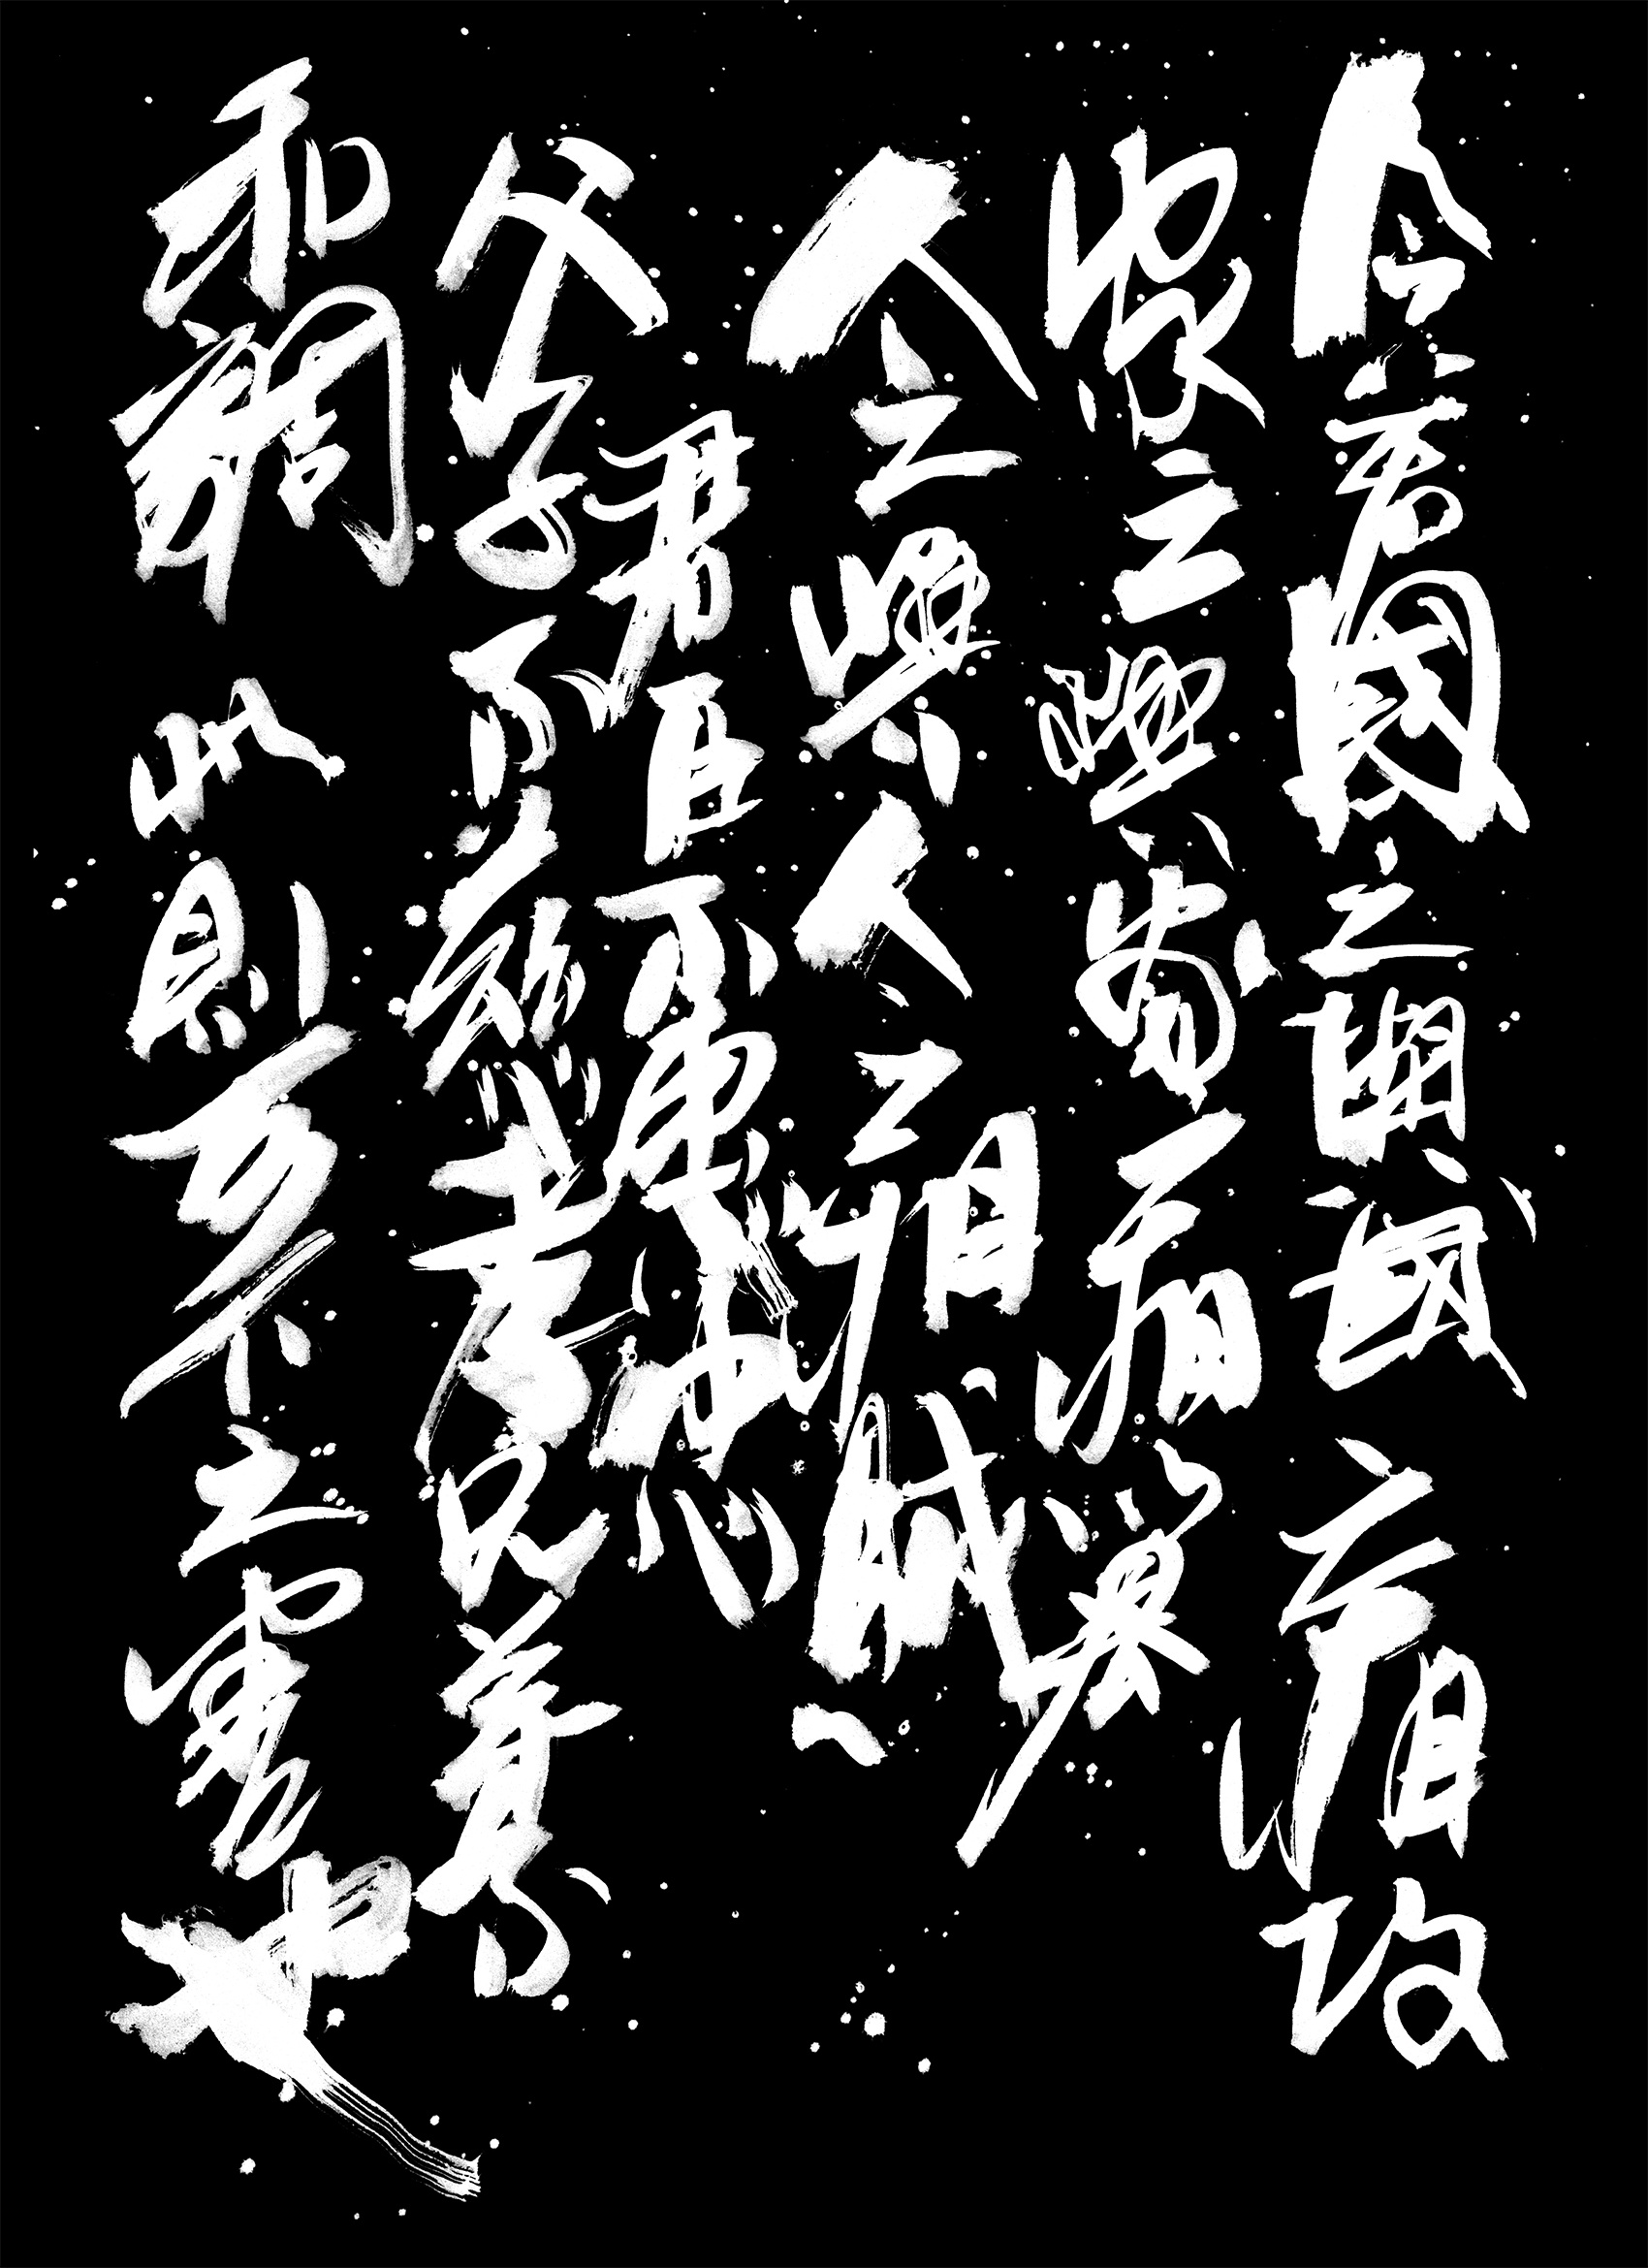 今若國之與國之相攻
家之與家之相篡
人之與人之相賊
君臣不惠忠
父子不慈孝兄弟不
和調此則天下之害也